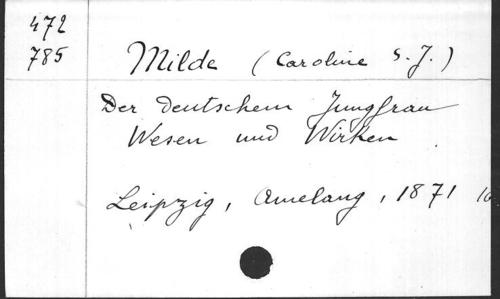 472
785
Milde (Caroline S. J.)
Der deutschem Jungfrau
Wesen und Wirken
Leipzig, Amelang, 1871